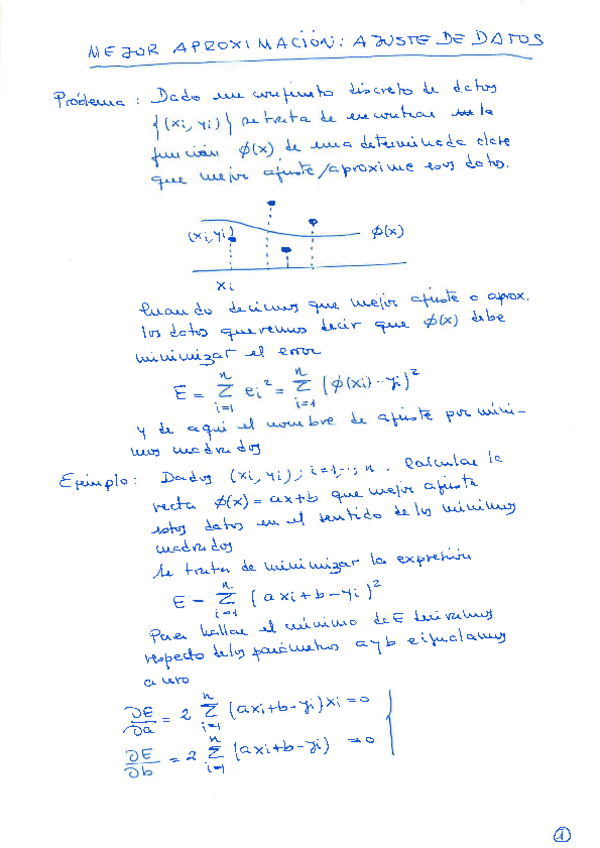 MEJOR APROXIMACIÓN: AJUSTE DE DATOS
Problema: Dado un conjunto discreto de datos
{(xi, yi)} se trata de encontrar la
función ϕ(x), de una determinada clase
que mejor ajuste/aproxime esos datos.
(xi, yi) ϕ(x)
xi
Cuando decimos que mejor ajuste o aprox.
los datos queremos decir que ϕ(x) debe
minimizar el error
E = n Σ i=1 ei² = n Σ i=1 (ϕ(xi) - yi)²
y de aquí el nombre de ajuste por míni-
mos cuadrados
Ejemplo: Dados (xi, yi), i=1,..., n. Calcular la
recta ϕ(x) = ax+b que mejor ajusta
estos datos en el sentido de los mínimos
cuadrados
Se trata de minimizar la expresión
E = n Σ i=1 (axi + b - yi)²
Para hallar el mínimo de E derivamos
respecto de los parámetros a y b e igualamos
a cero
∂E/∂a = 2 n Σ i=1 (axi+b-yi)xi = 0
∂E/∂b = 2 n Σ i=1 (axi+b-yi) = 0
1